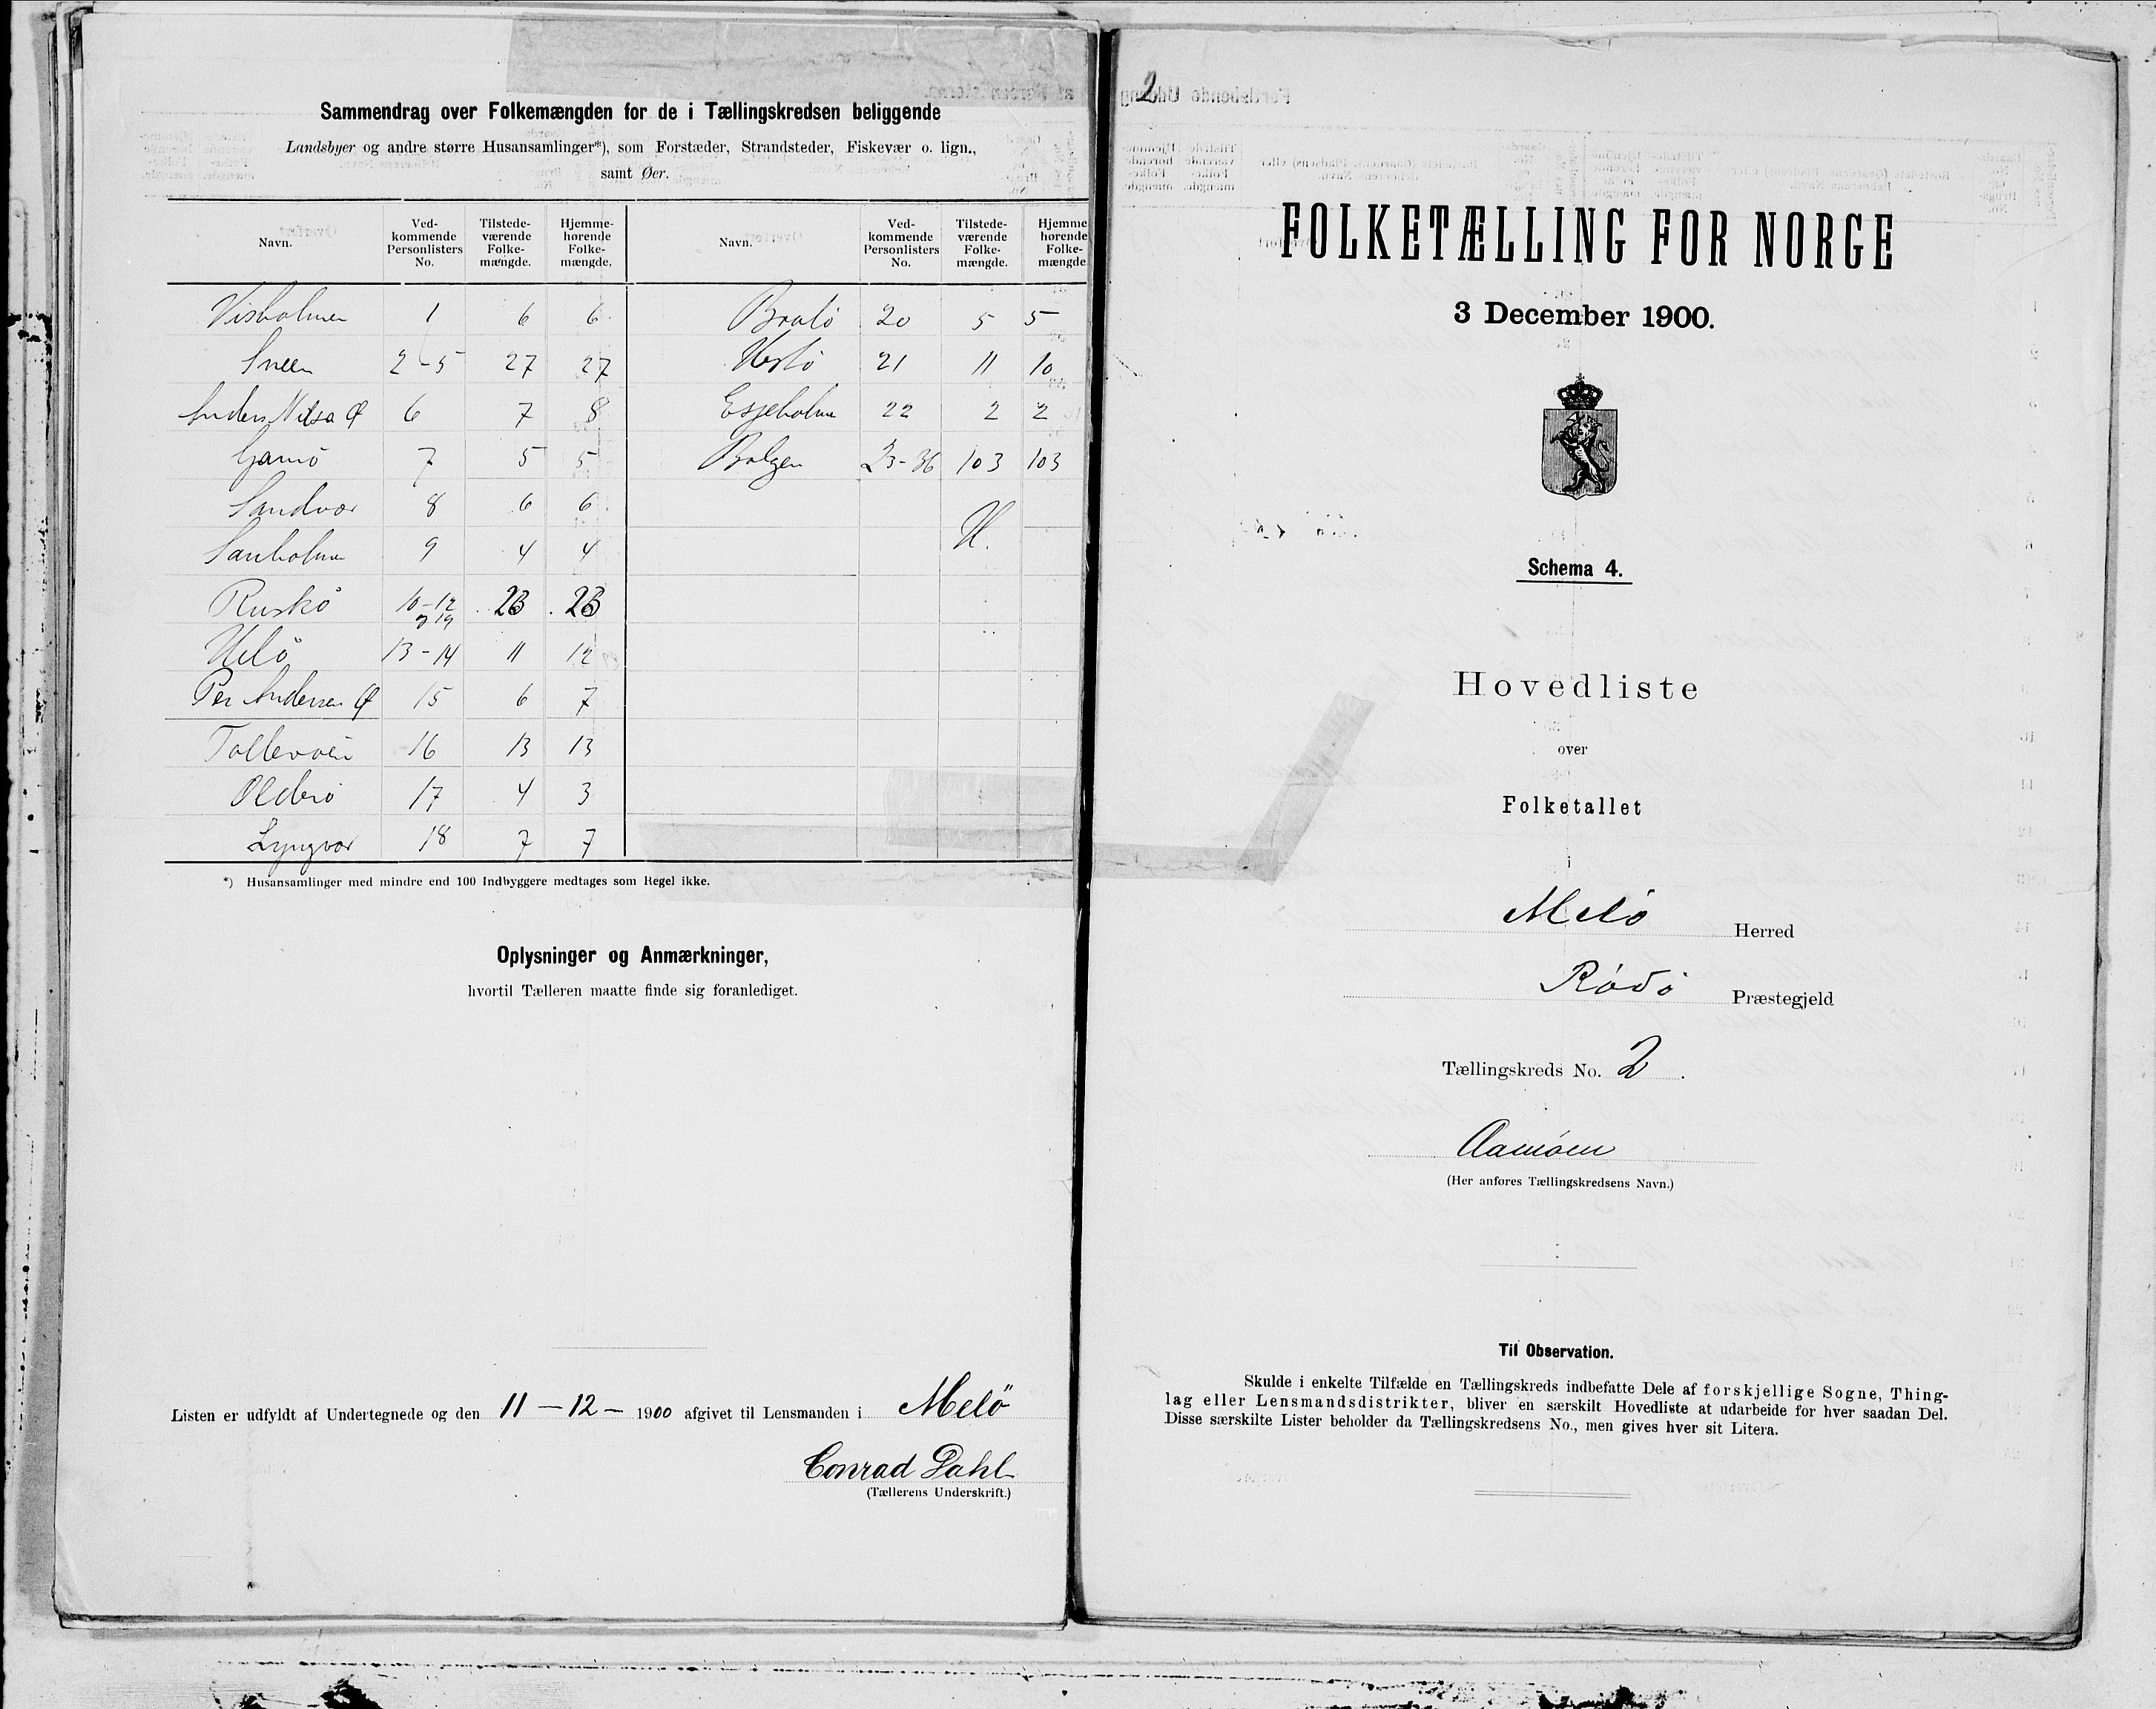 Sammendrag over Folkemængden for de i Tællingskredsen beliggende
Landsbyer og andre større Husansamlinger*), som Forstæder, Strandsteder, Fiskevær o. lign.,
samt Øer.
Navn. Ved-kommende Personlisters No. Tilstede-værende Folke-mængde. Hjemme-hørende Folke-mængde. Navn. Ved-kommende Personlisters No. Tilstede-værende Folke-mængde. Hjemme hørende Folke-mængde
Visholmen 1 6 6 20 5 5
Sneen 2-5 27 27 21 11 10
Anders Nilsa Ø 6 7 8 Esjeholm 22 2 2
7 5 5 Bolgen 23-36 103 103
Sandvær 8 6 6
9 4 4
Ruskö 10-12 23 23
og 19
13-14 11 12
Per Andersen Ø 15 6 7
16 13 13
Olderö 17 4 3
Lyngvær 18 7 7
*) Husansamlinger med mindre end 100 Indbyggere medtages som Regel ikke.
Oplysninger og Anmærkninger,
hvortil Tælleren maatte finde sig foranlediget.
Listen er udfyldt af Undertegnede og den 11-12- 1900 afgivet til Lensmanden i Melö
Conrad Dahl
(Tællerens Underskrift.)
2
FOLKETÆLLING FOR NORGE
3 December 1900.
Schema 4.
Hovedliste
over
Folketallet
i
Melö Herred
Rödö Præstegjeld
Tællingskreds No. 2.
(Her anføres Tællingskredsens Navn.)
Til Observation.
Skulde i enkelte Tilfælde en Tællingskreds indbefatte Dele af forskjellige Sogne, Thing-
lag eller Lensmandsdistrikter, bliver en særskilt Hovedliste at udarbeide for hver saadan Del.
Disse særskilte Lister beholder da Tællingskredsens No., men gives hver sit Litera.